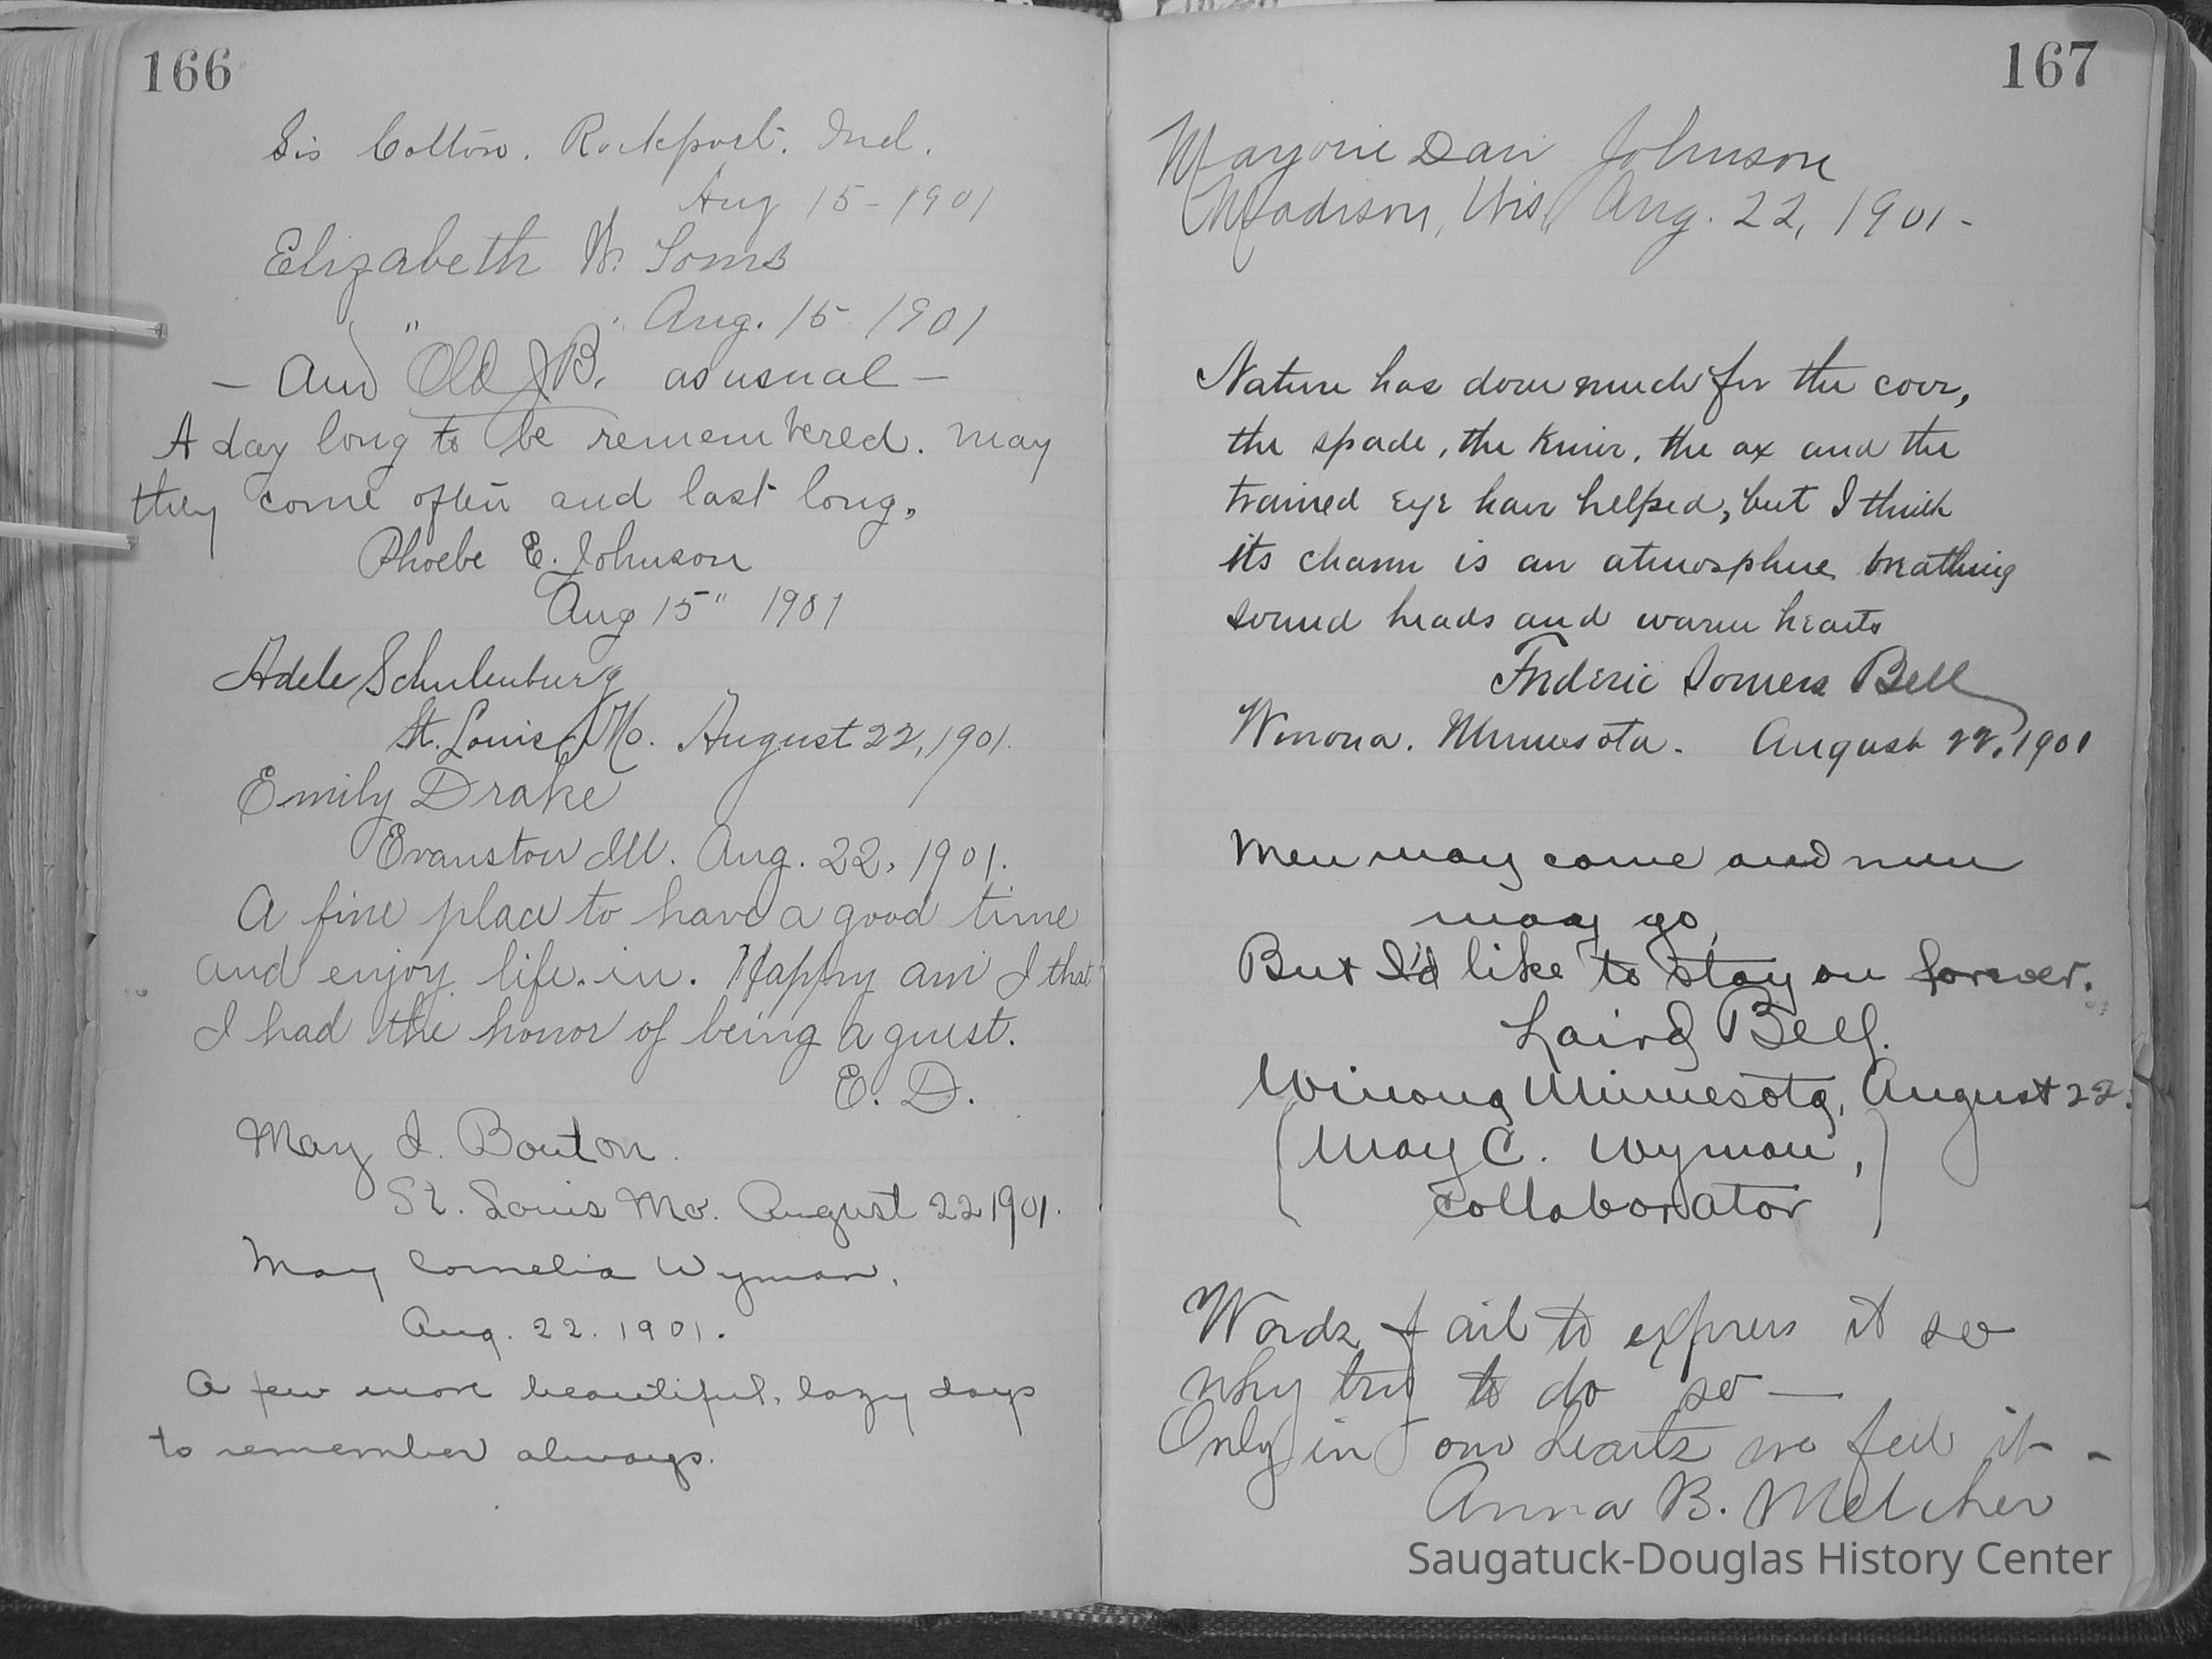 166
Sis Cotton. Rockport. Ind.
Aug 15 - 1901
Elizabeth W. Toms
" " Aug. 15 1901
- And Old J B. as usual -
A day long to be remembered. May
they come often and last long.
Phoebe E. Johnson
Aug 15" 1901
Adele Schulenburg
St. Louis, Mo. August 22, 1901.
Emily Drake
Evanston Ill. Aug. 22, 1901.
A fine place to have a good time
and enjoy life in. Happy am I that
I had the honor of being a guest.
E. D.
May I. Bouton.
St. Louis Mo. August 22 1901.
May Cornelia Wyman.
Aug. 22. 1901.
A few more beautiful, lazy days
to remember always.
167
Marjorie Johnson
Madison, Wis. Aug. 22, 1901-
Nature has done much for the cove,
the spade, the knife, the ax and the
trained eye have helped, but I think
its charm is an atmosphere breathing
sound heads and warm hearts
Frederic Somers Bell
Winona. Minnesota. August 22, 1901
Men may come and men
may go,
But I'd like to stay on forever.
Laird Bell.
Winona Minnesota, August 22.
(May C. Wyman,
collaborator)
Words fail to express it so
why try to do so —
Only in our hearts we feel it -
Anna B. Melcher
Saugatuck-Douglas History Center